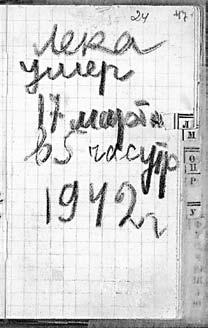 24 47
лека
умер
17 марта
в 5 час утр
1942 г
Л
М
О П
Р
У